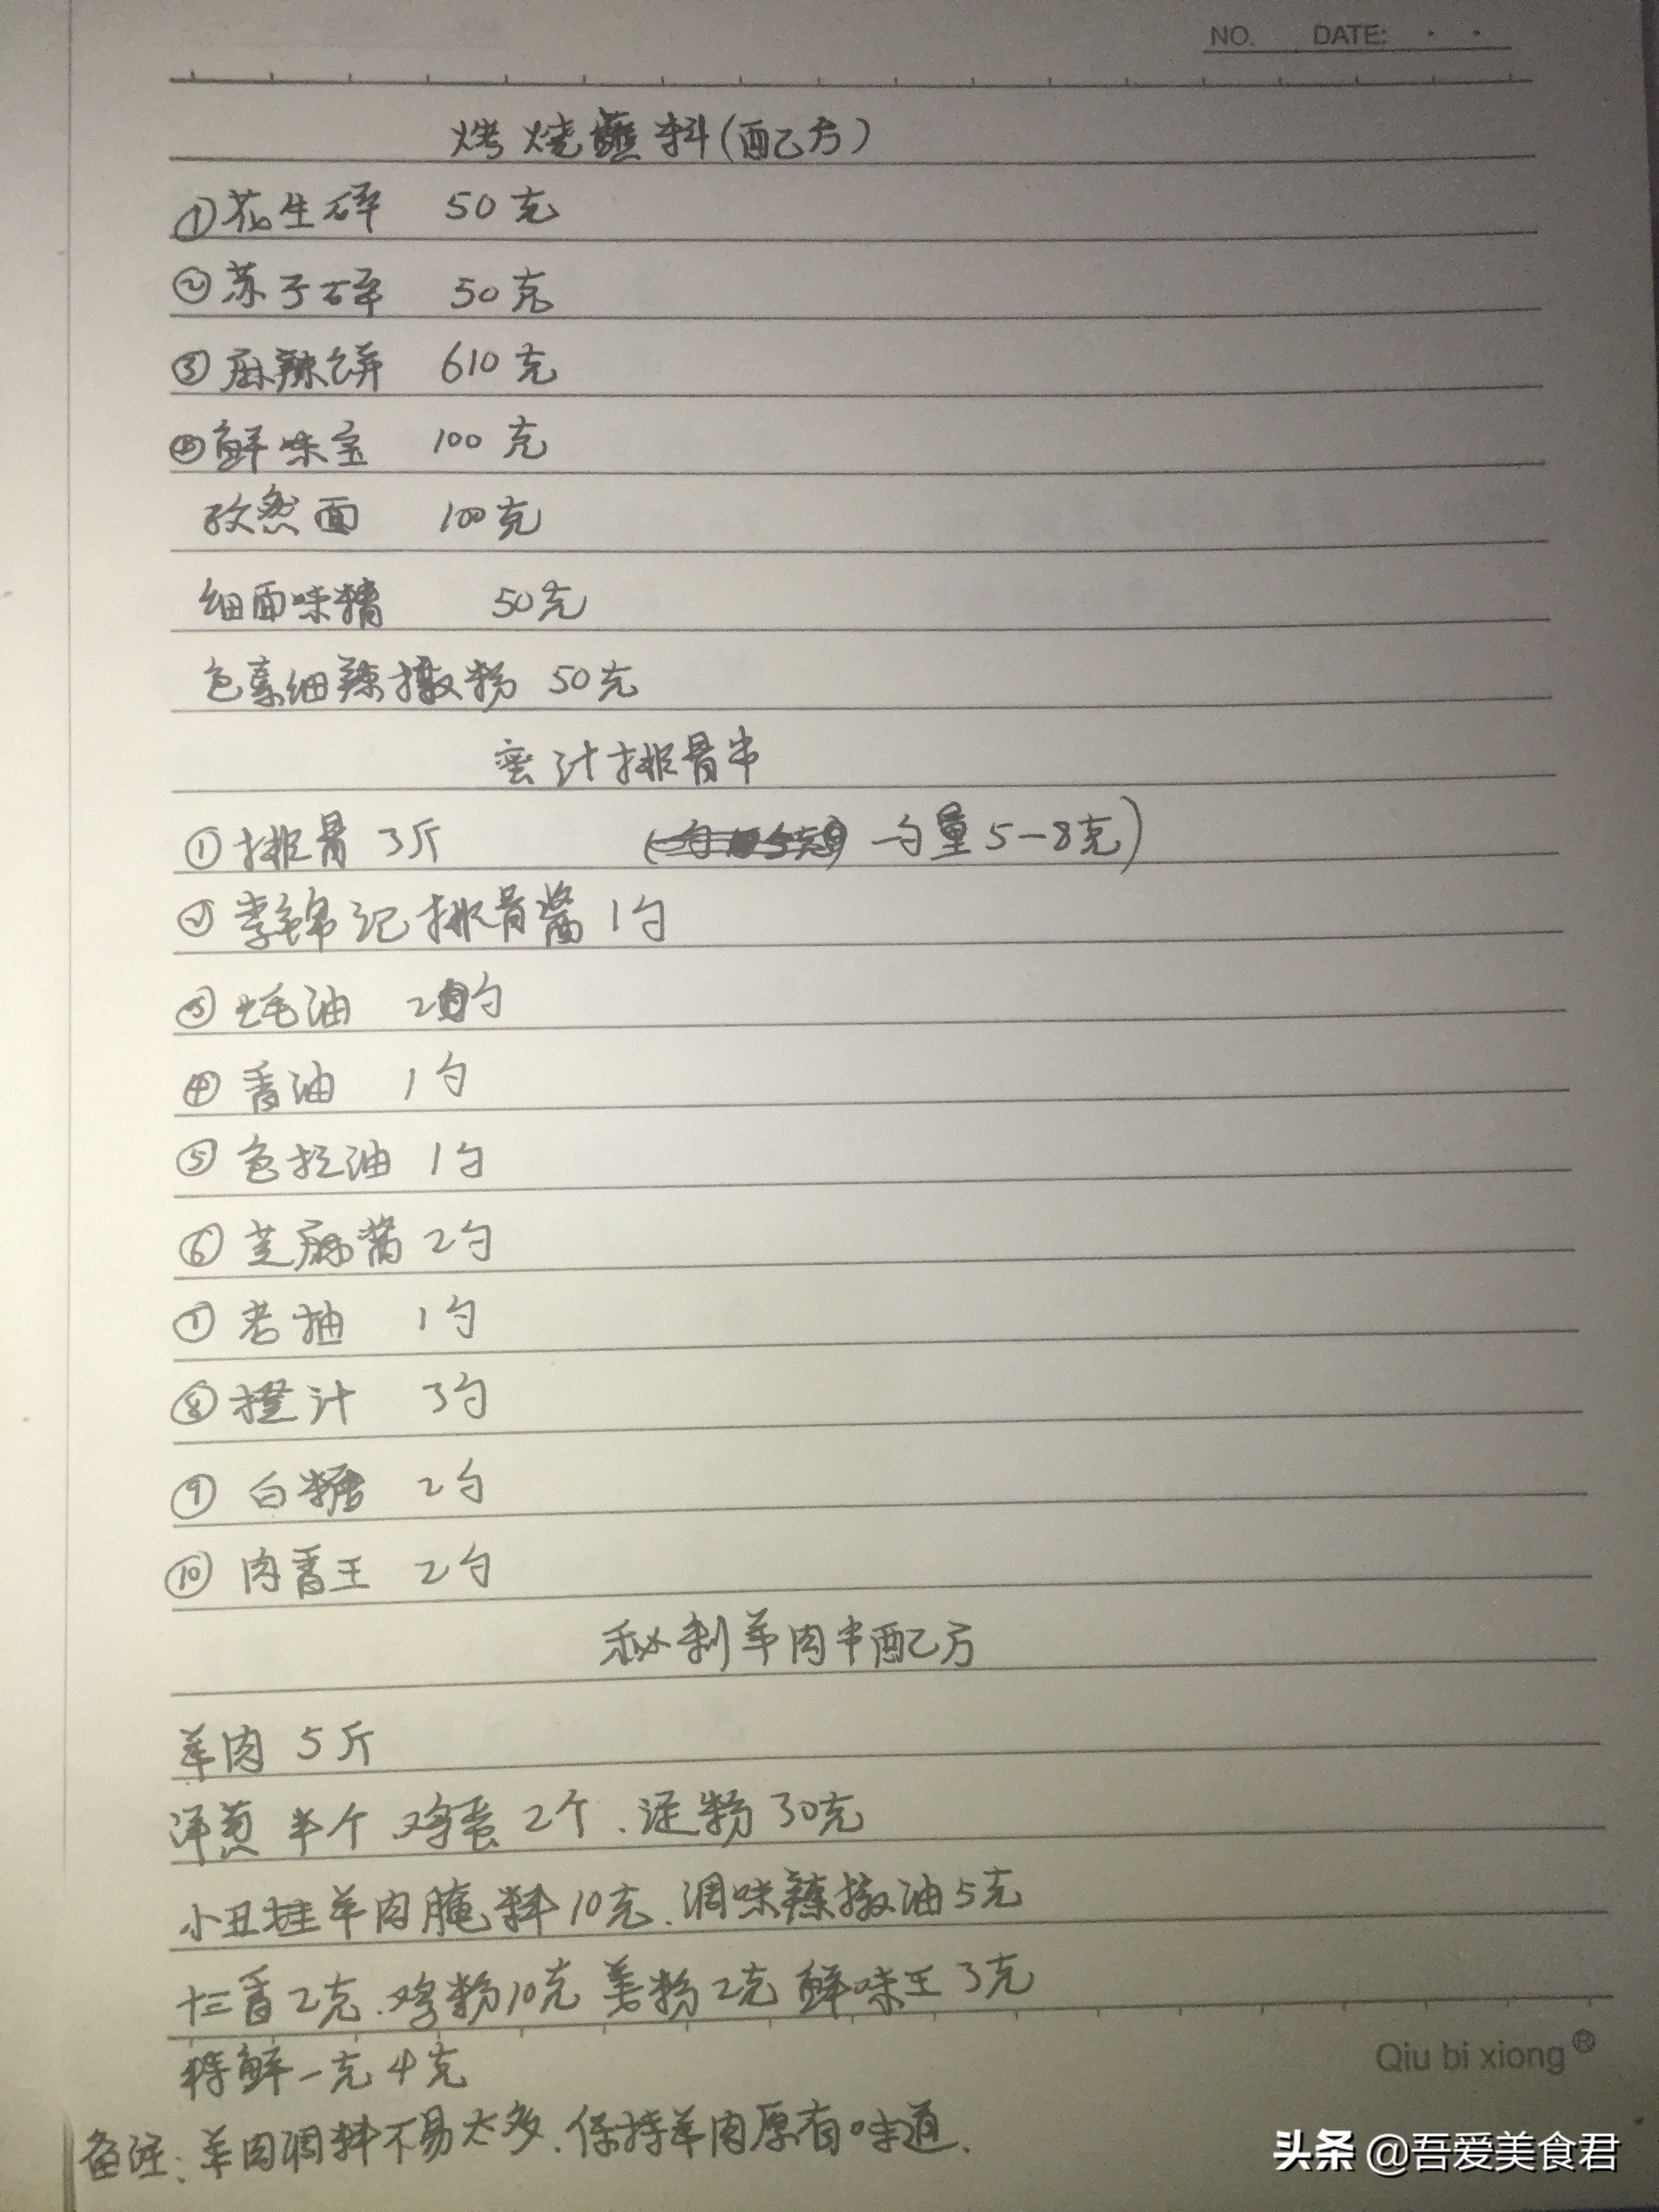 NO. DATE: · ·
烤烧蘸料(配方)
①花生碎 50克
②苏子碎 50克
③麻辣饼 610克
④鲜味宝 100克
孜然面 100克
细面味精 50克
色素细辣椒粉 50克
蜜汁排骨串
①排骨 3斤 一勺量5-8克)
②李锦记排骨酱 1勺
③蚝油 2勺
④香油 1勺
⑤色拉油 1勺
⑥芝麻酱 2勺
⑦老抽 1勺
⑧橙汁 3勺
⑨白糖 2勺
⑩肉香王 2勺
秘制羊肉串配方
羊肉 5斤
洋葱 半个、鸡蛋 2个、淀粉 30克
小丑挂羊肉腌料10克、调味辣椒油5克
十三香2克、鸡粉10克 姜粉2克 鲜味王3克
特鲜一克 4克
Qiu bi xiong®
备注:羊肉调料不易太多、保持羊肉原有味道、
头条 @吾爱美食君